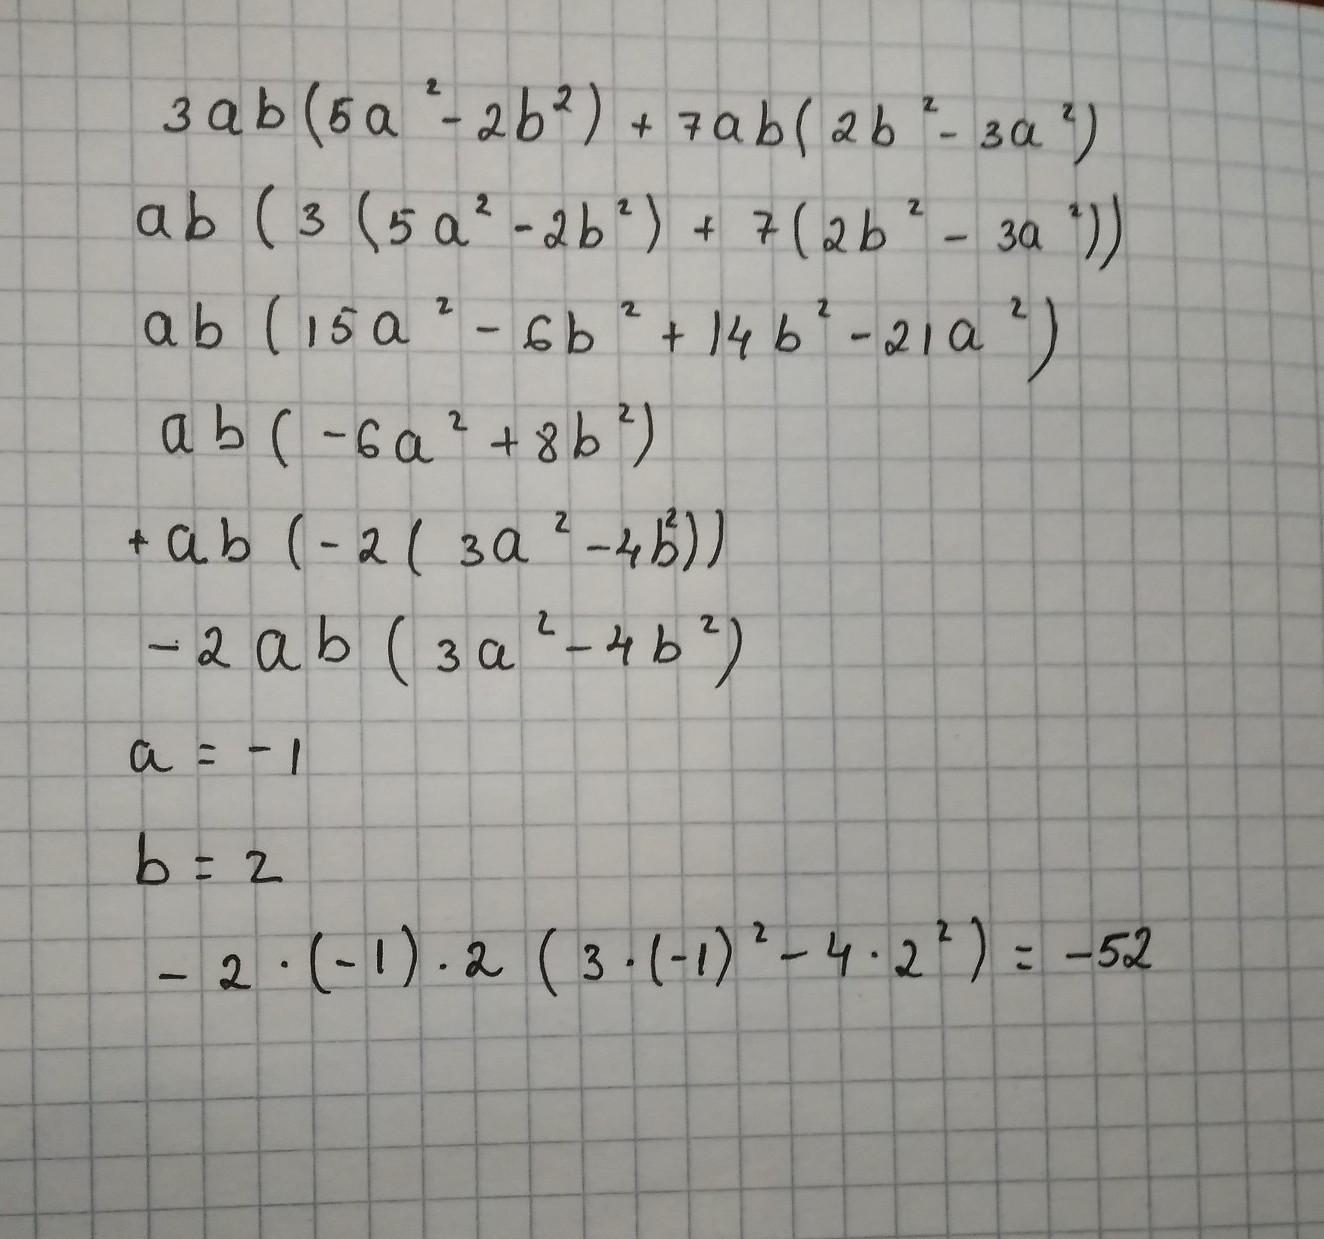 3ab(5a² - 2b²) + 7ab(2b² - 3a²)
ab(3(5a² - 2b²) + 7(2b² - 3a²))
ab(15a² - 6b² + 14b² - 21a²)
ab(-6a² + 8b²)
+ab(-2(3a² - 4b²))
-2ab(3a² - 4b²)
a = -1
b = 2
-2·(-1)·2(3·(-1)² - 4·2²) = -52